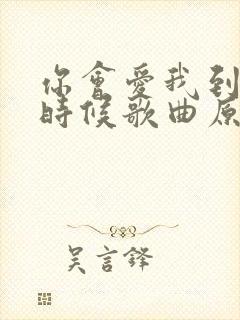 你會愛我到
時候歌曲原
吳言鋒